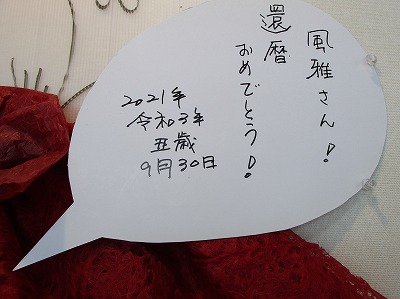 風雅さん!
還暦
おめでとう!
2021年
令和3年
丑歳
9月30日